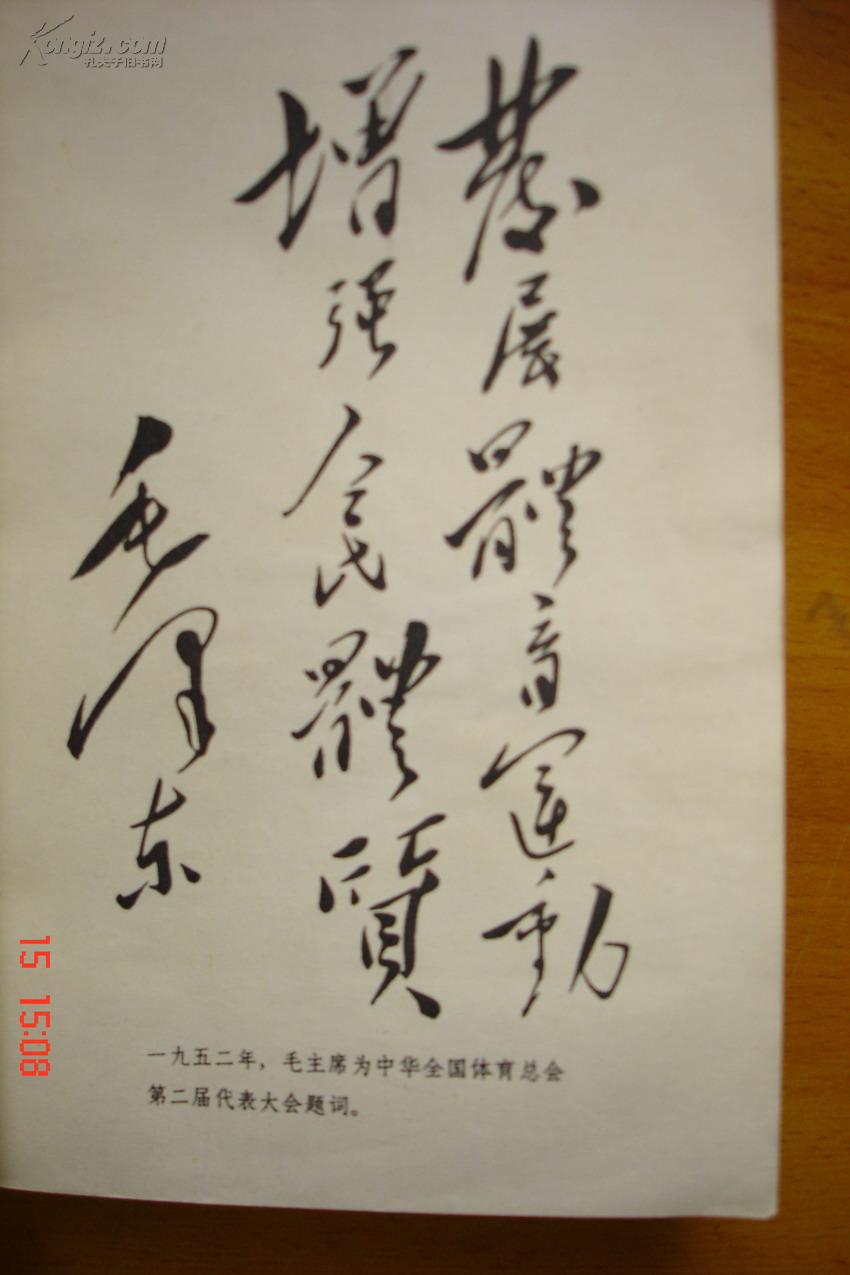 Kongfz.com
孔夫子旧书网
發展體育運動
增強人民體質
毛澤东
一九五二年，毛主席为中华全国体育总会
第二届代表大会题词。
15 15:08